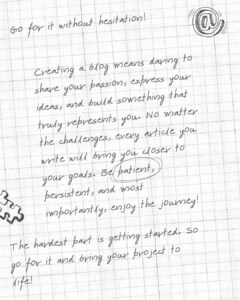 Go for it without hesitation!
@
Creating a blog means daring to
share your passion, express your
ideas, and build something that
truly represents you. No matter
the challenges, every article you
write will bring you closer to
your goals. Be patient,
persistent, and most
importantly, enjoy the journey!
The hardest part is getting started. So
go for it and bring your project to
life!